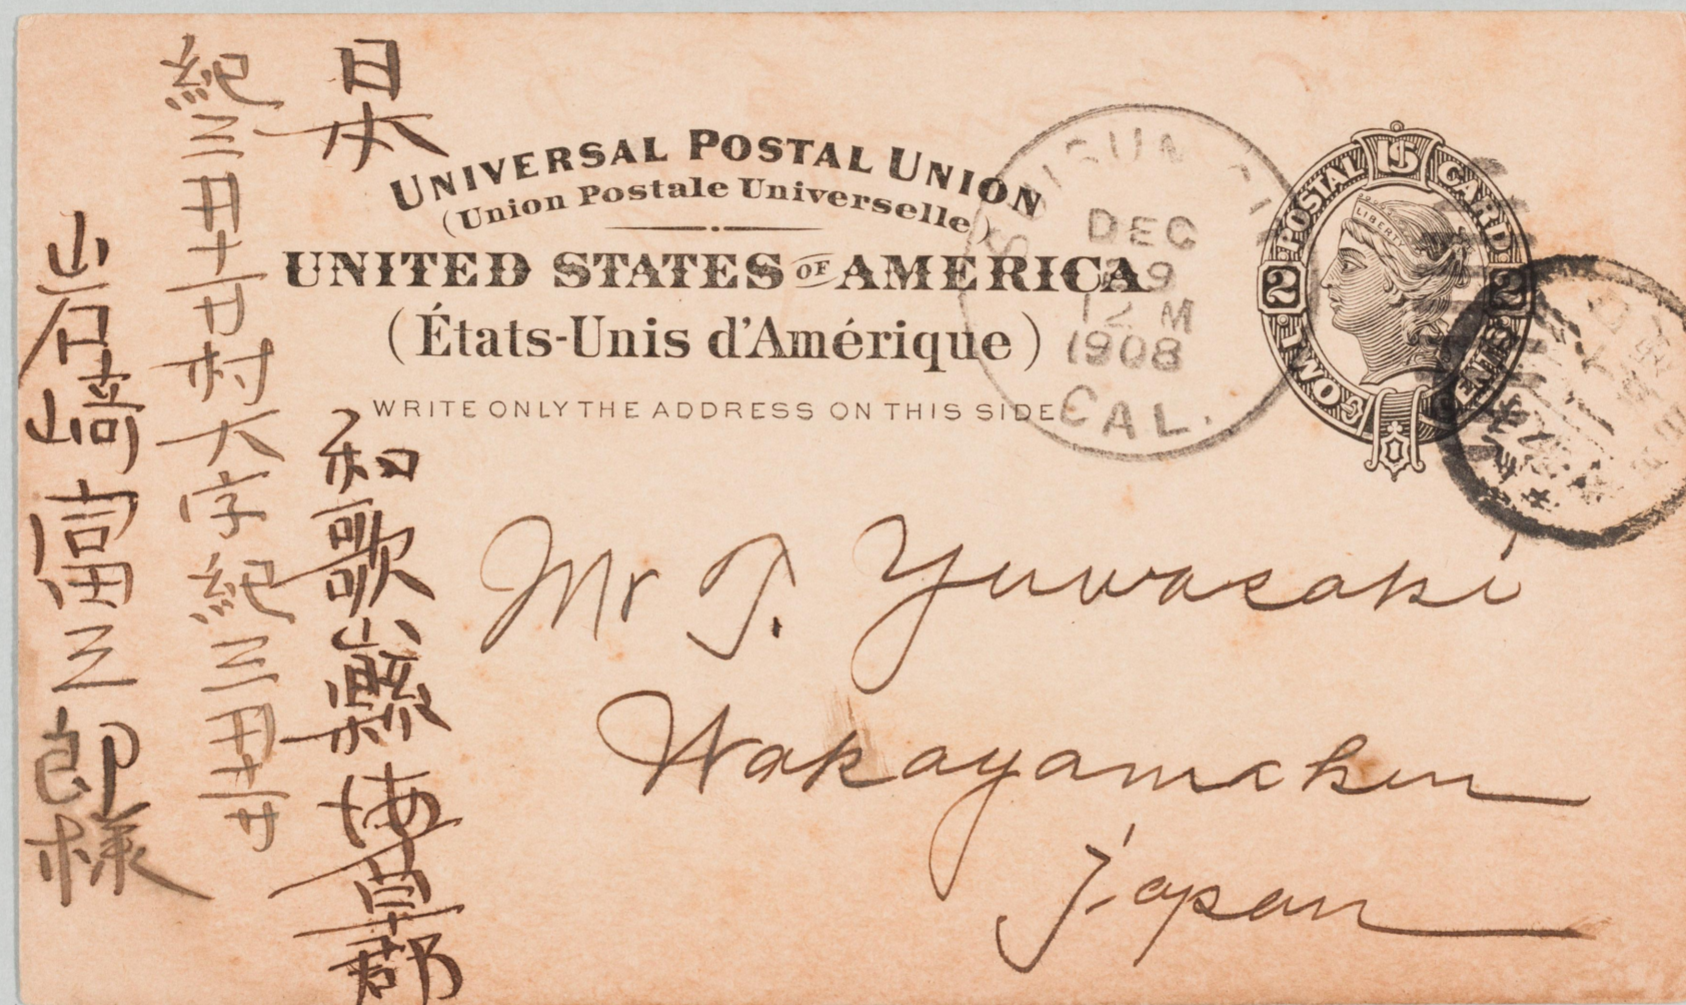 日本
和歌山縣海草郡
紀三井寺村大字紀三井寺
岩崎富三郎様
UNIVERSAL POSTAL UNION
(Union Postale Universelle)
UNITED STATES OF AMERICA
(États-Unis d'Amérique)
WRITE ONLY THE ADDRESS ON THIS SIDE
SUISUN
DEC
12 M
1908
CAL.
POSTAL US CARD
LIBERTY
2 2
CENTS
Mr T. Yuwasaki
Wakayamaken
Japan